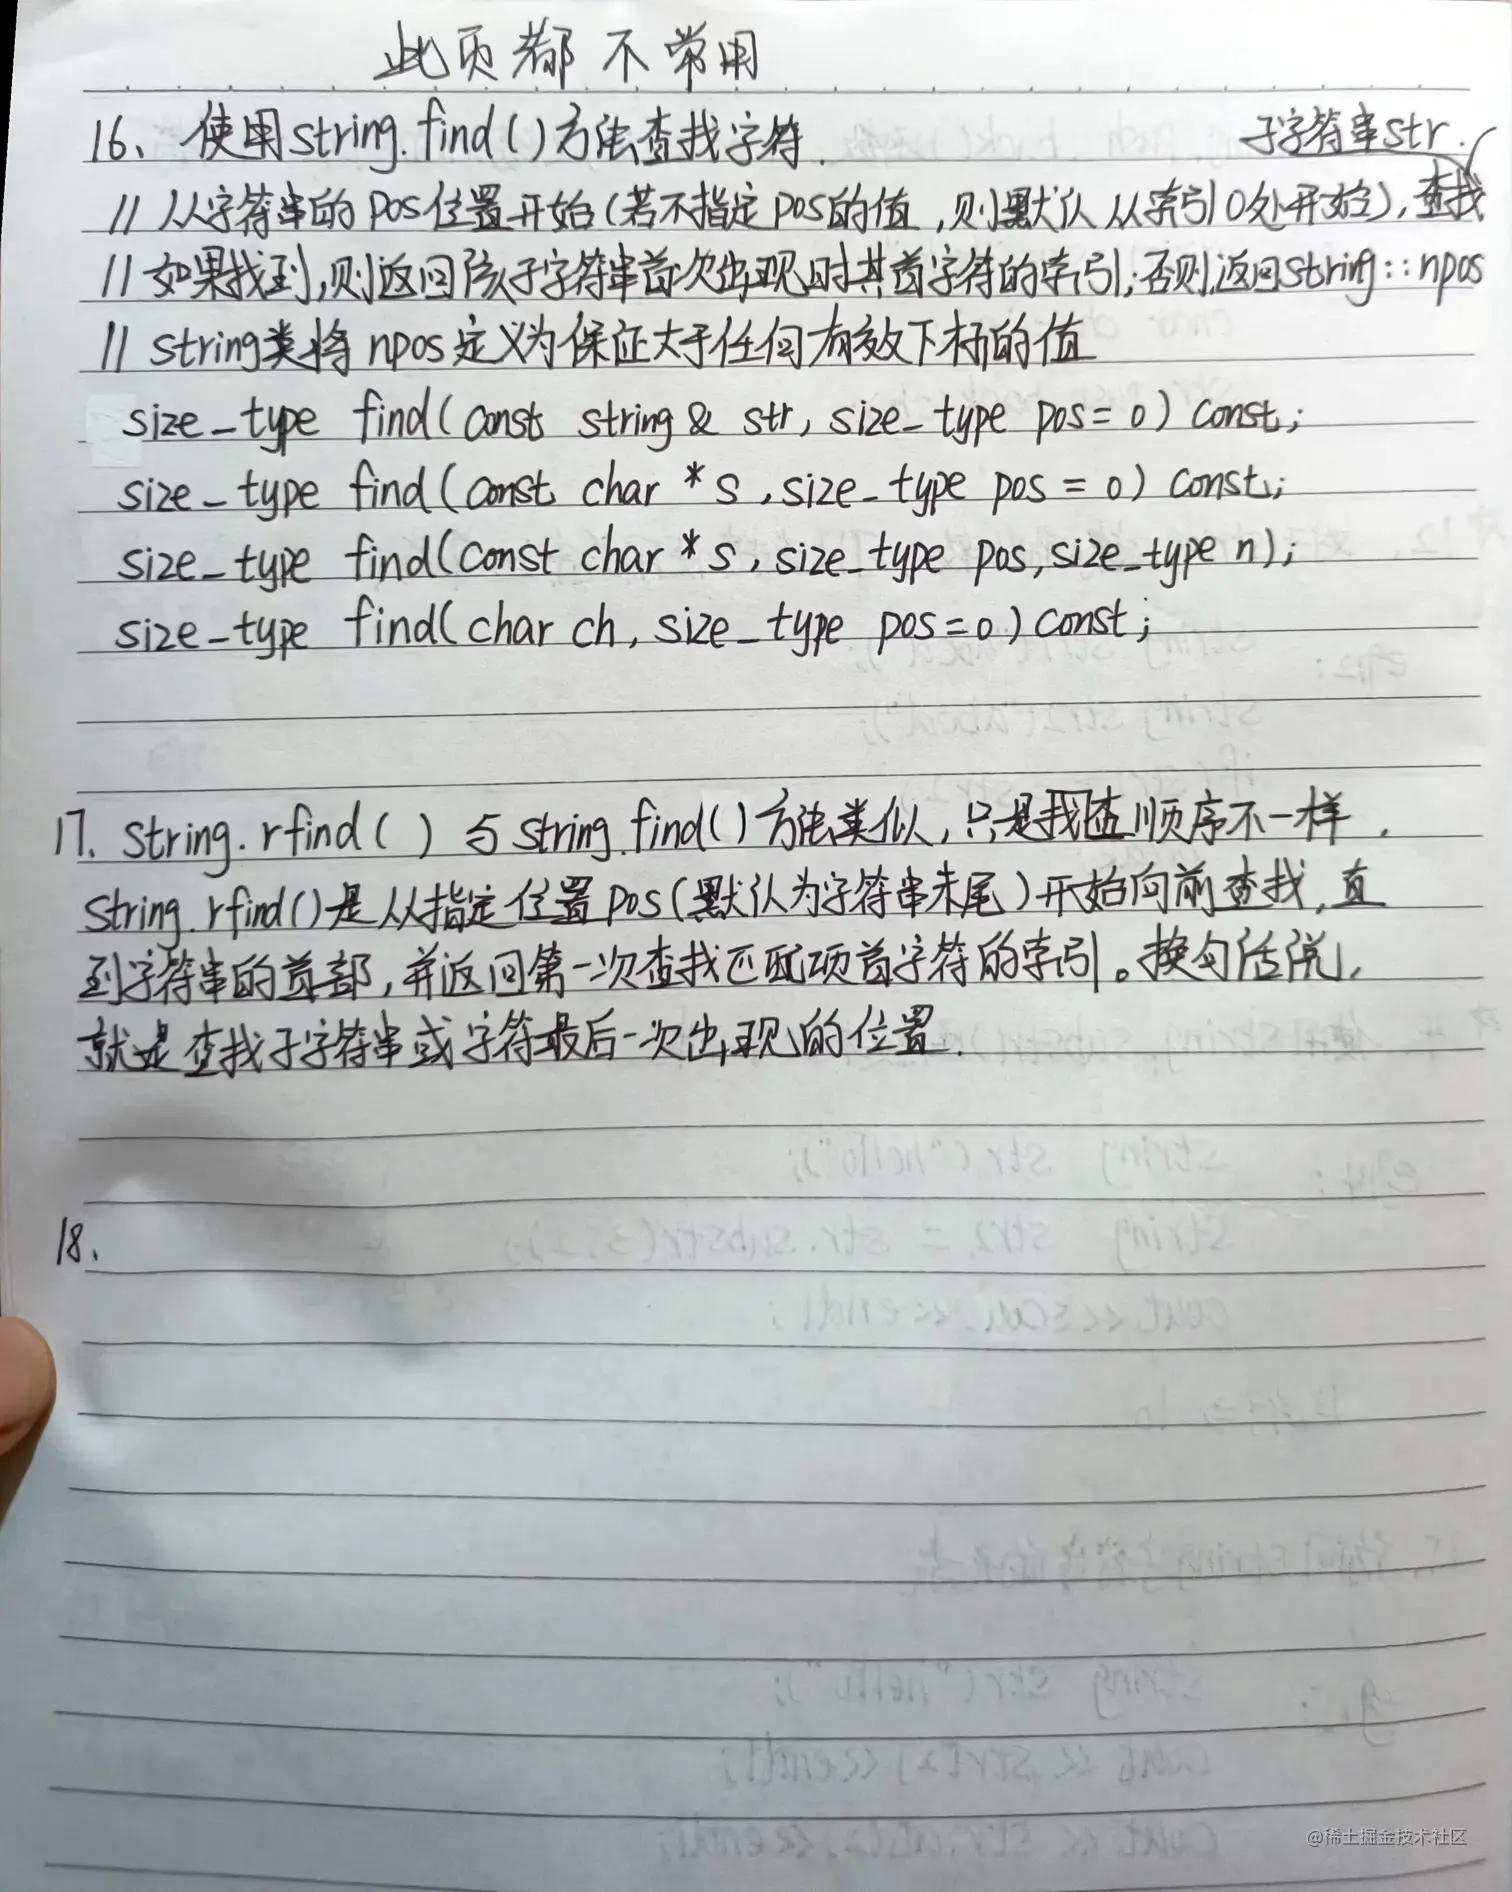 此页都不常用
16、使用string.find()方法查找字符.
子字符串str.
// 从字符串的pos位置开始(若不指定pos的值,则默认从索引0处开始),查找
// 如果找到,则返回该子字符串首次出现时其首字符的索引;否则,返回string::npos
// string类将npos定义为保证大于任何有效下标的值
size_type find(const string & str, size_type pos=0) const;
size_type find(const char *s, size_type pos = 0) const;
size_type find(const char *s, size_type pos, size_type n);
size_type find(char ch, size_type pos=0) const;
17. string.rfind() 与string.find()方法类似,只是找查顺序不一样.
string.rfind()是从指定位置pos(默认为字符串末尾)开始向前查找,直
到字符串的首部,并返回第一次查找匹配项首字符的索引。换句话说,
就是查找子字符串或字符最后一次出现的位置.
18.
@稀土掘金技术社区